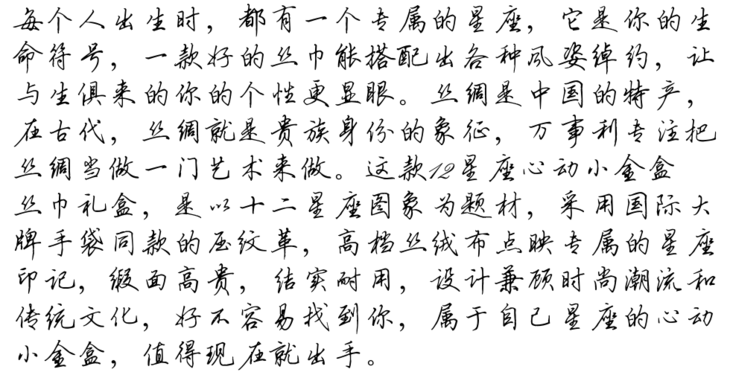 每个人出生时，都有一个专属的星座，它是你的生
命符号，一款好的丝巾能搭配出各种风姿绰约，让
与生俱来的你的个性更显眼。丝绸是中国的特产，
在古代，丝绸就是贵族身份的象征，万事利专注把
丝绸当做一门艺术来做。这款12星座心动小金盒
丝巾礼盒，是以十二星座图象为题材，采用国际大
牌手袋同款的压纹革，高档丝绒布点映专属的星座
印记，缎面高贵，结实耐用，设计兼顾时尚潮流和
传统文化，好不容易找到你，属于自己星座的心动
小金盒，值得现在就出手。